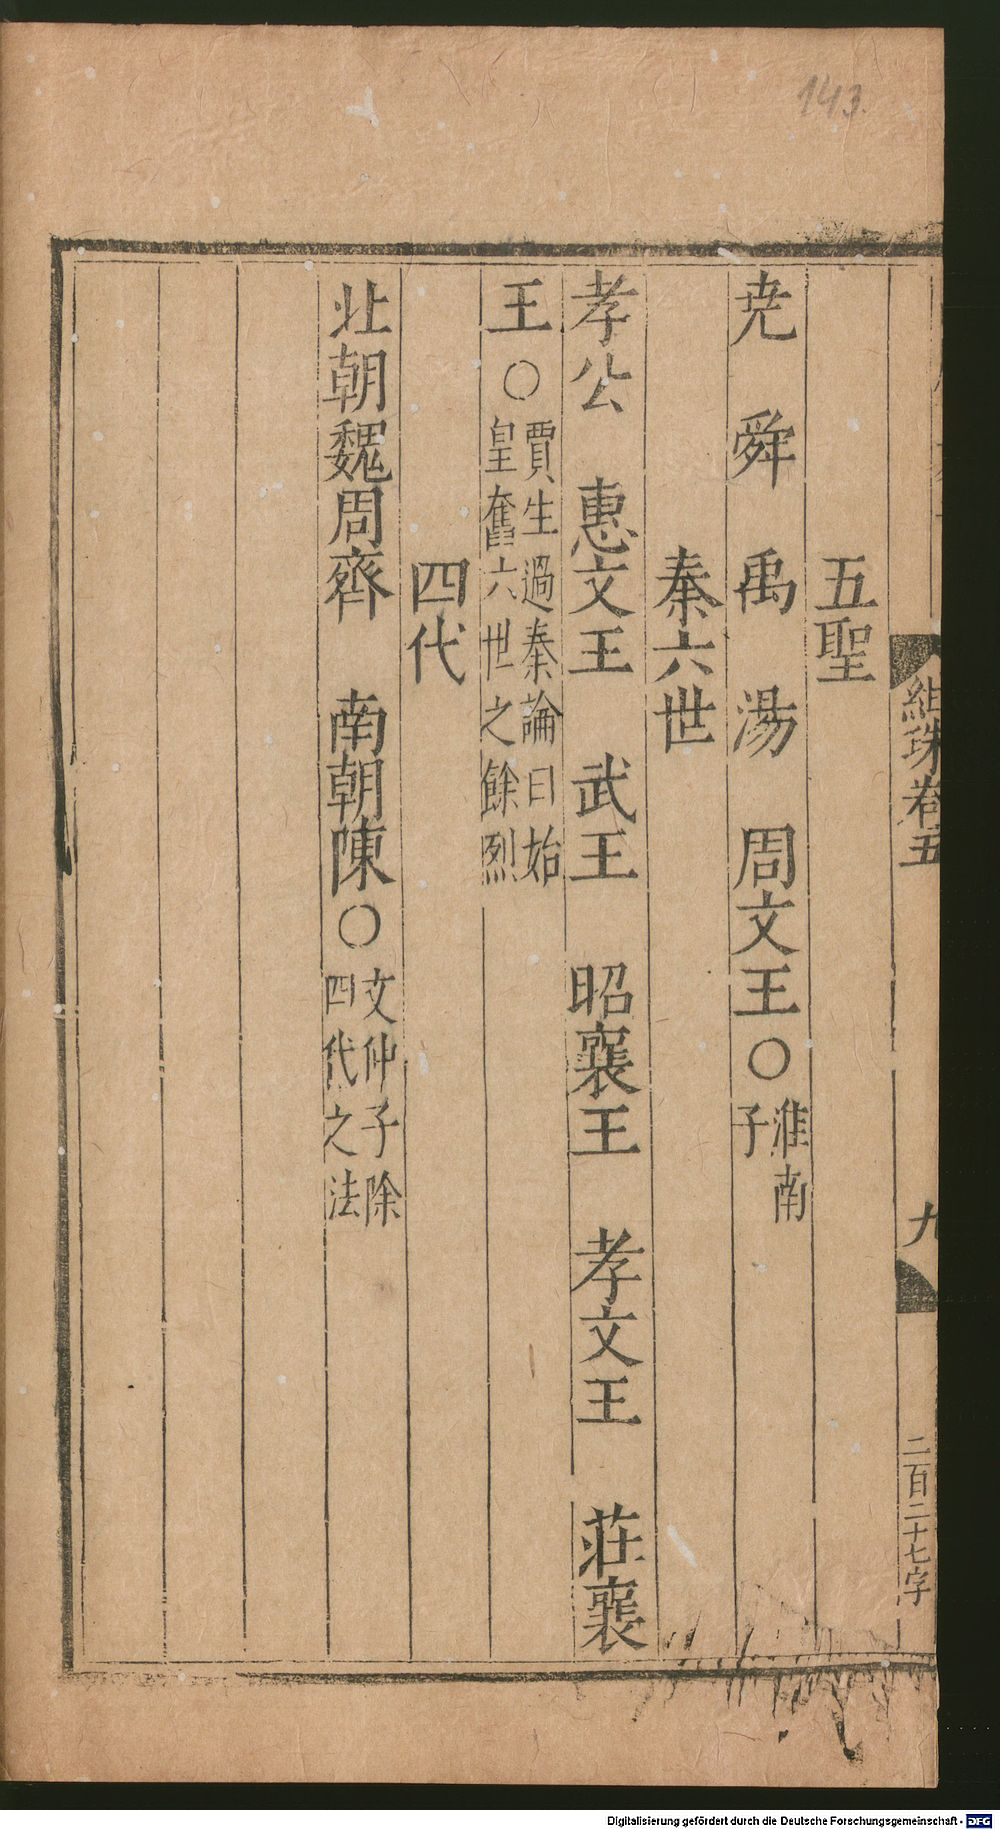 143.
組珠卷五
九
二百二十七字
五聖
尭 舜 禹 湯 周文王○淮南子
秦六世
孝公 惠文王 武王 昭襄王 孝文王 莊襄
王○賈生過秦論曰始皇奮六世之餘烈
四代
北朝魏周齊 南朝陳○文仲子除四代之法
Digitalisierung gefördert durch die Deutsche Forschungsgemeinschaft - DFG